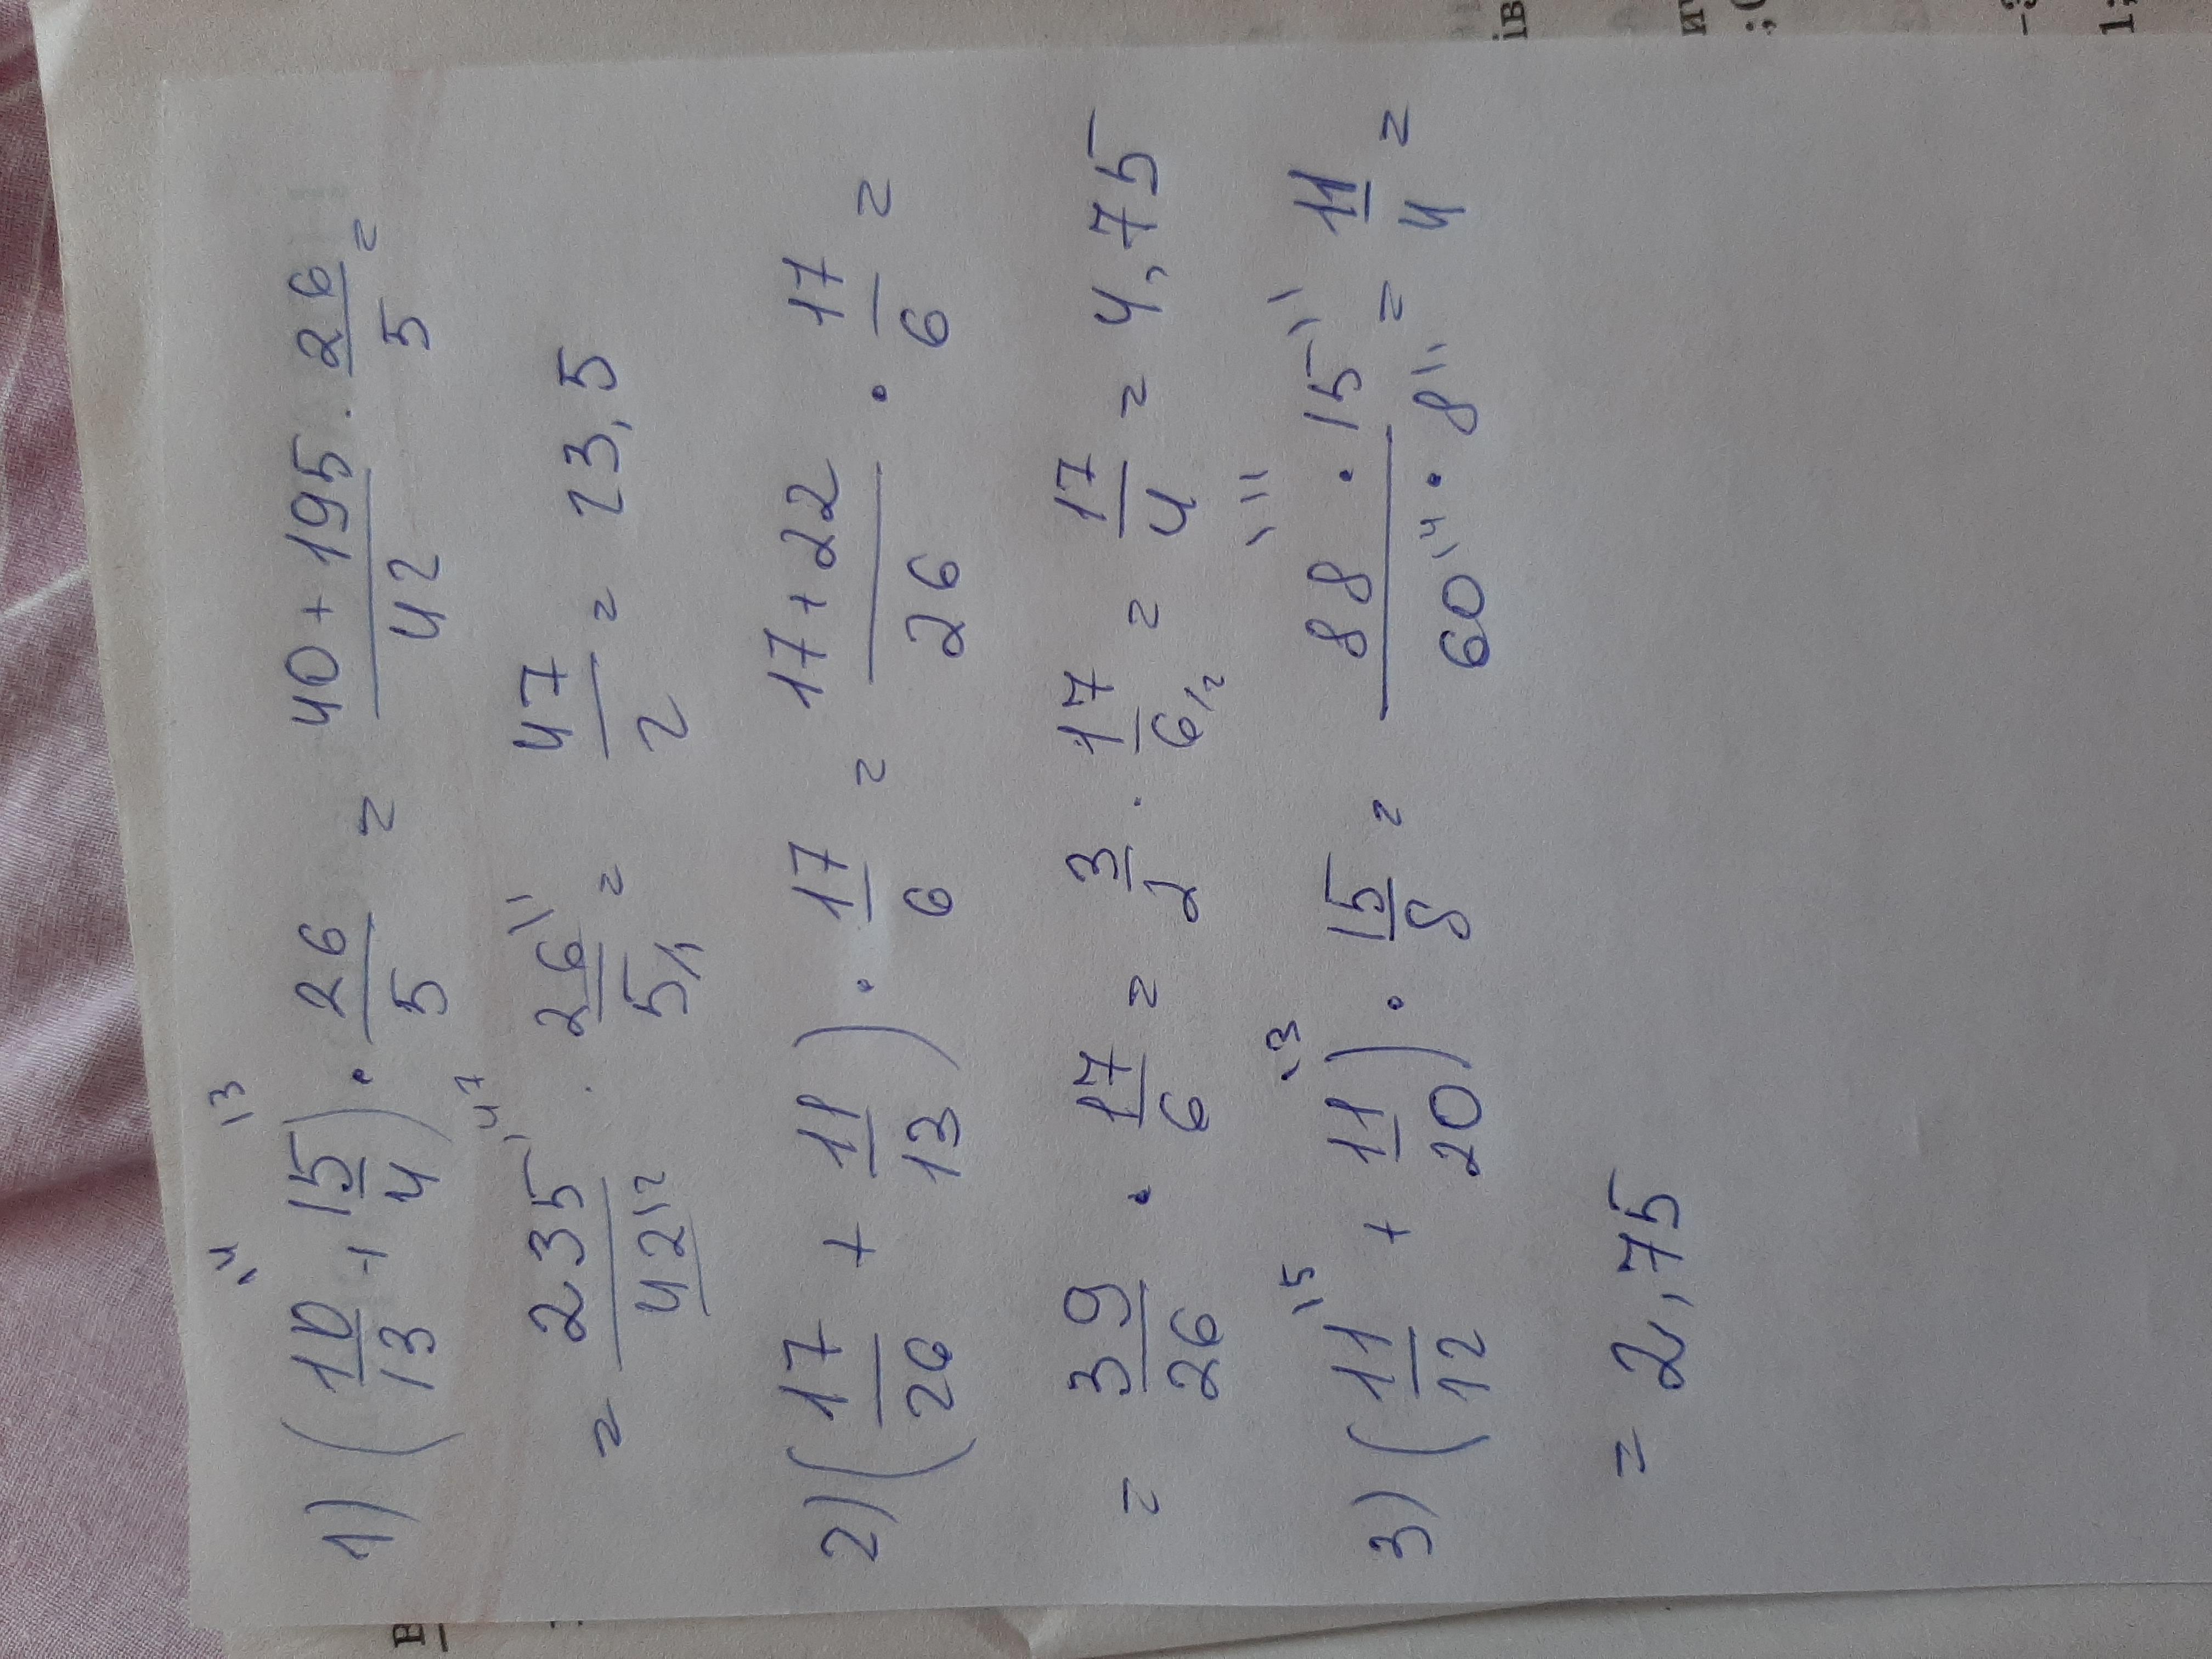 1) (10/13 ^4 + 15/4 ^13) · 26/5 = (40 + 195)/42 · 26/5 =
= 235 ^47/42 ^2 · 26 ^1/5 ^1 = 47/2 = 23,5
2) (17/26 + 11/13) · 17/6 = (17 + 22)/26 · 17/6 =
= 39/26 · 17/6 = 3/2 · 17/6 ^2 = 17/4 = 4,75
3) (11/12 ^5 + 11/20 ^3) · 15/8 = (88 ^11 · 15 ^1)/(60 ^4 · 8 ^1) = 11/4 =
= 2,75
ів